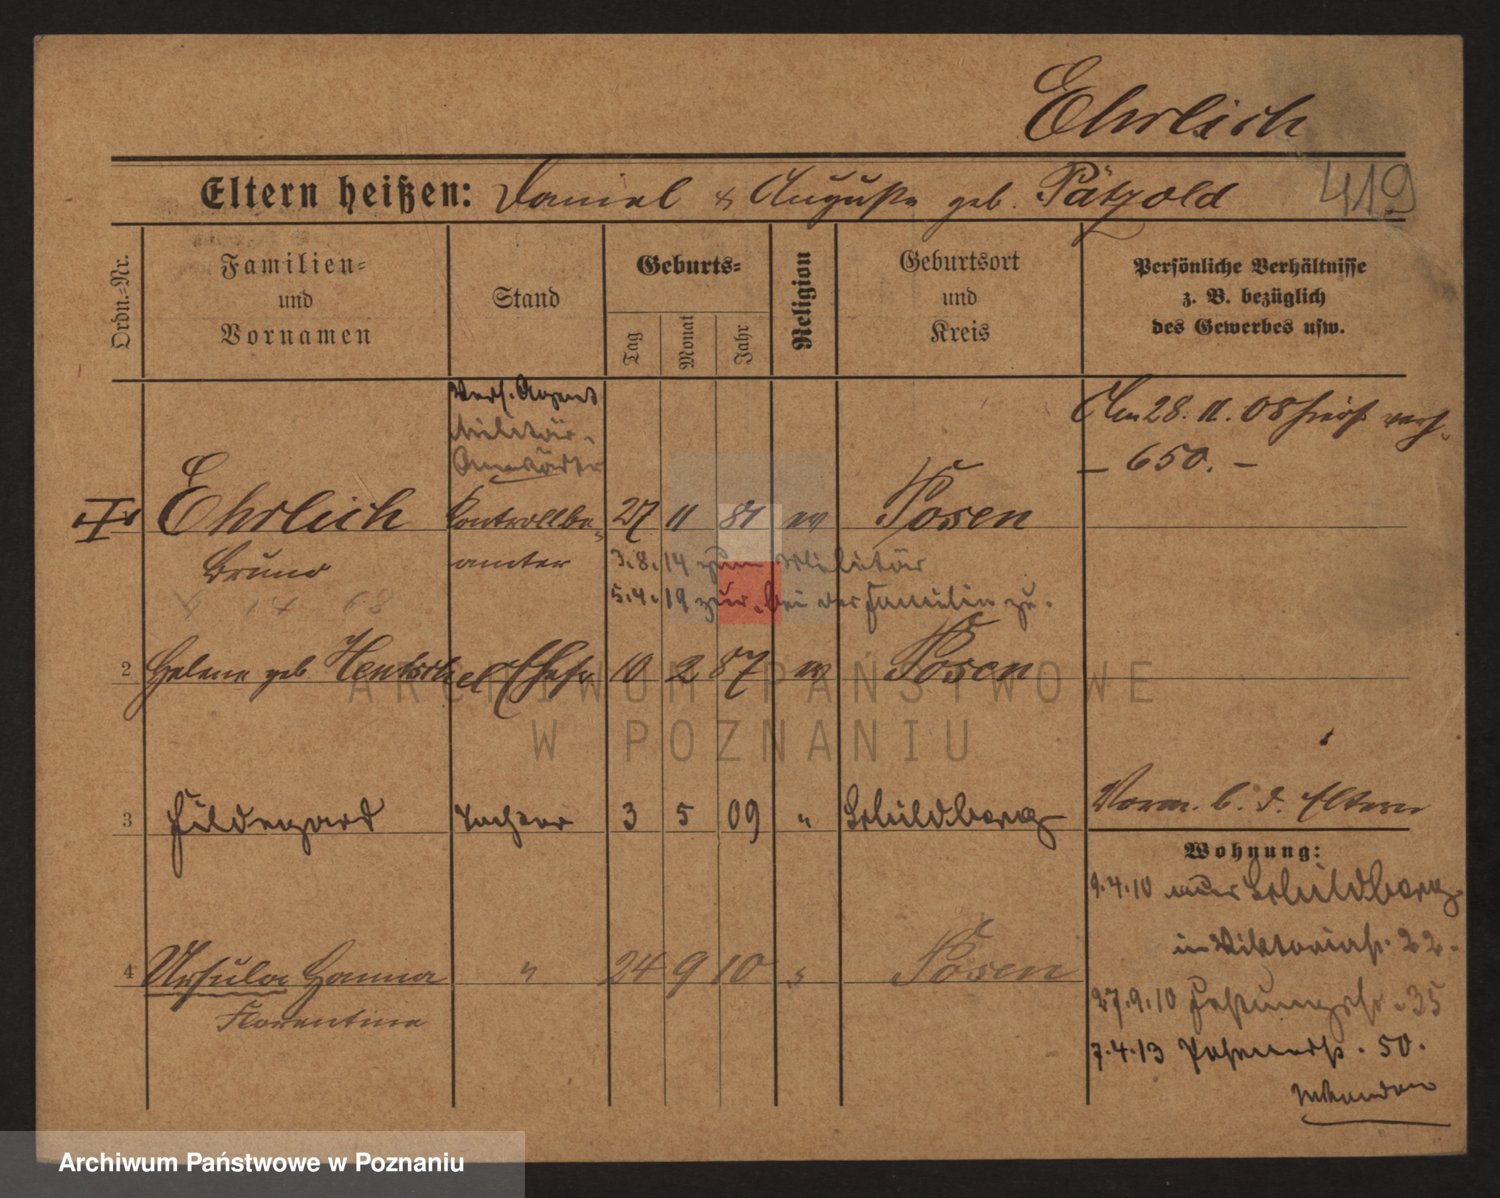 Ehrlich
419
Eltern heißen: Daniel & Auguste geb. Pätzold
Ordn.=Nr.
Familien=
und
Vornamen
Stand
Geburts=
Tag
Monat
Jahr
Religion
Geburtsort
und
Kreis
Persönliche Verhältnisse
z. B. bezüglich
des Gewerbes usw.
Vers. Agent
Militär-
Anwärter
Am 28. 11. 08 hier
– 650. –
Ehrlich Kontrollbe= 27 11 81 ev Posen
Bruno amter
3.8.14 zum Militär
5.4.19 zur. bei der Familie zu.
2 Helene geb. Hentschel Ehefr 10 2 87 ev Posen
3 Hildegard Tochter 3 5 09 " Schildberg
Vorm. b. d. Eltern
Wohnung:
9.4.10 aus Schildberg
in Viktoriast. 22.
4 Ursula Hanna " 24 9 10 " Posen
Florentine
27.9.10 Festungsstr. 35
7.4.13 50.
ARCHIWUM PAŃSTWOWE
W POZNANIU
Archiwum Państwowe w Poznaniu